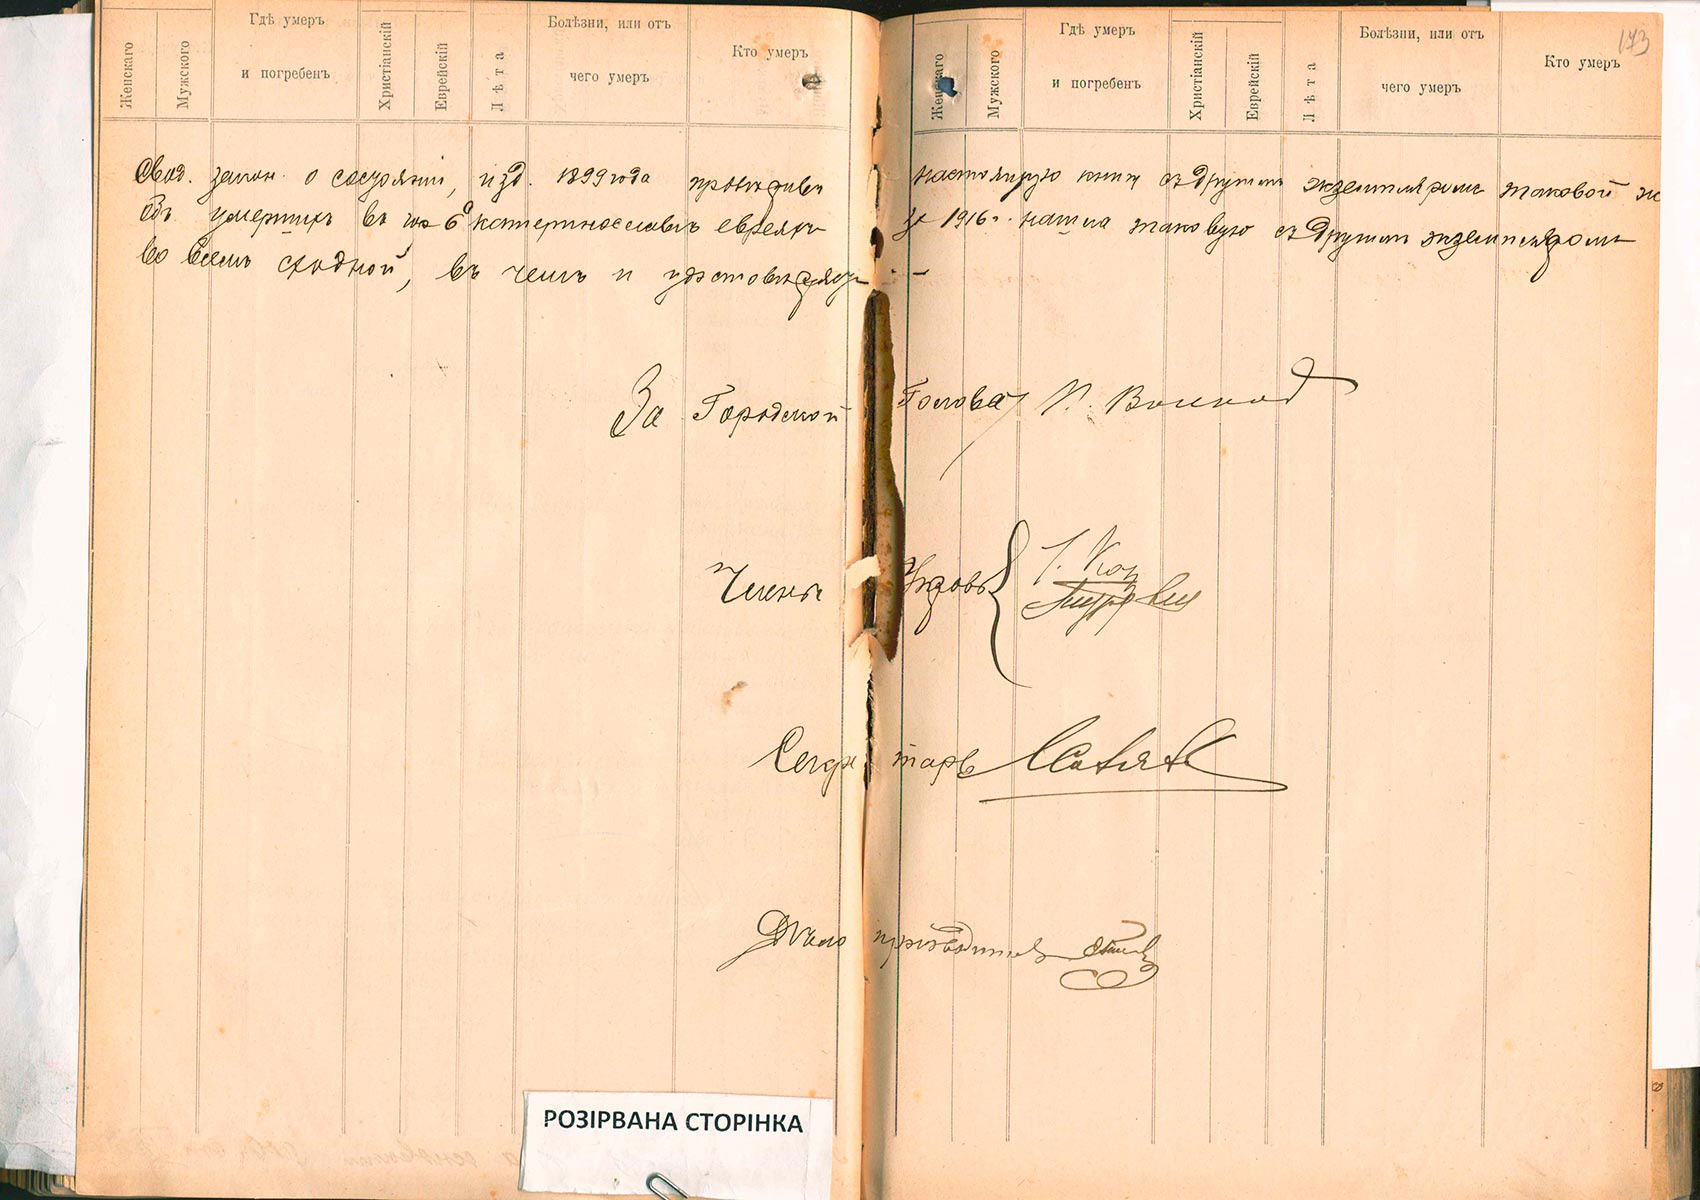 Женскаго Мужского Гдѣ умеръ и погребенъ Христіанскій Еврейскій Лѣта Болѣзни, или отъ чего умеръ Кто умеръ
Женскаго Мужского Гдѣ умеръ и погребенъ Христіанскій Еврейскій Лѣта Болѣзни, или отъ чего умеръ Кто умеръ
173
Свод. закон. о состояніи, изд. 1899 года настоящую книгу съ другимъ экземпляромъ таковой
Объ умершихъ въ Екатеринославѣ евреяхъ за 1916 г. нашла таковую съ другимъ экземпляромъ
во всемъ сходной, въ чемъ и удостовѣряетъ
За Городской Голова И.
Члены Управы
Секретарь
Дѣлопроизводитель
РОЗІРВАНА СТОРІНКА